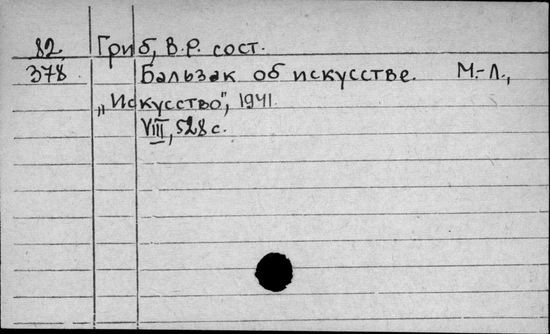 82 Гриб, В.Р. сост.
378 Бальзак об искусстве. М.-Л.,
„Искусство", 1941.
VIII, 528 с.